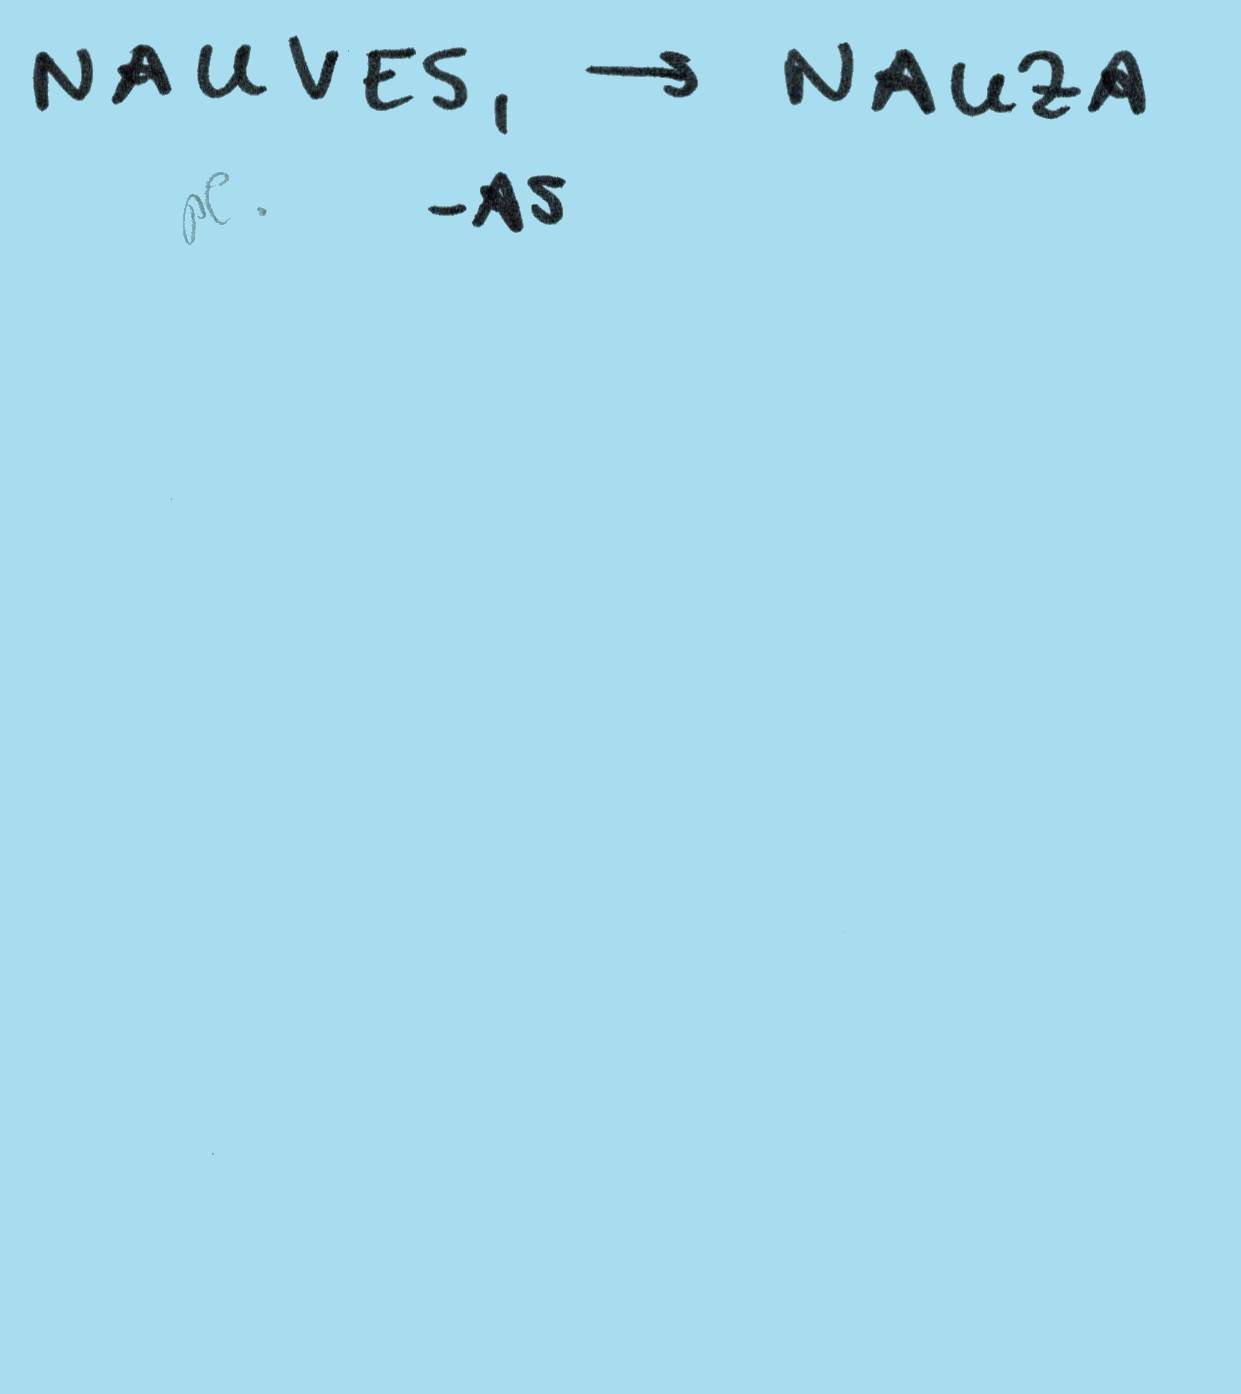 NAUVES, → NAUZA
pl. -AS